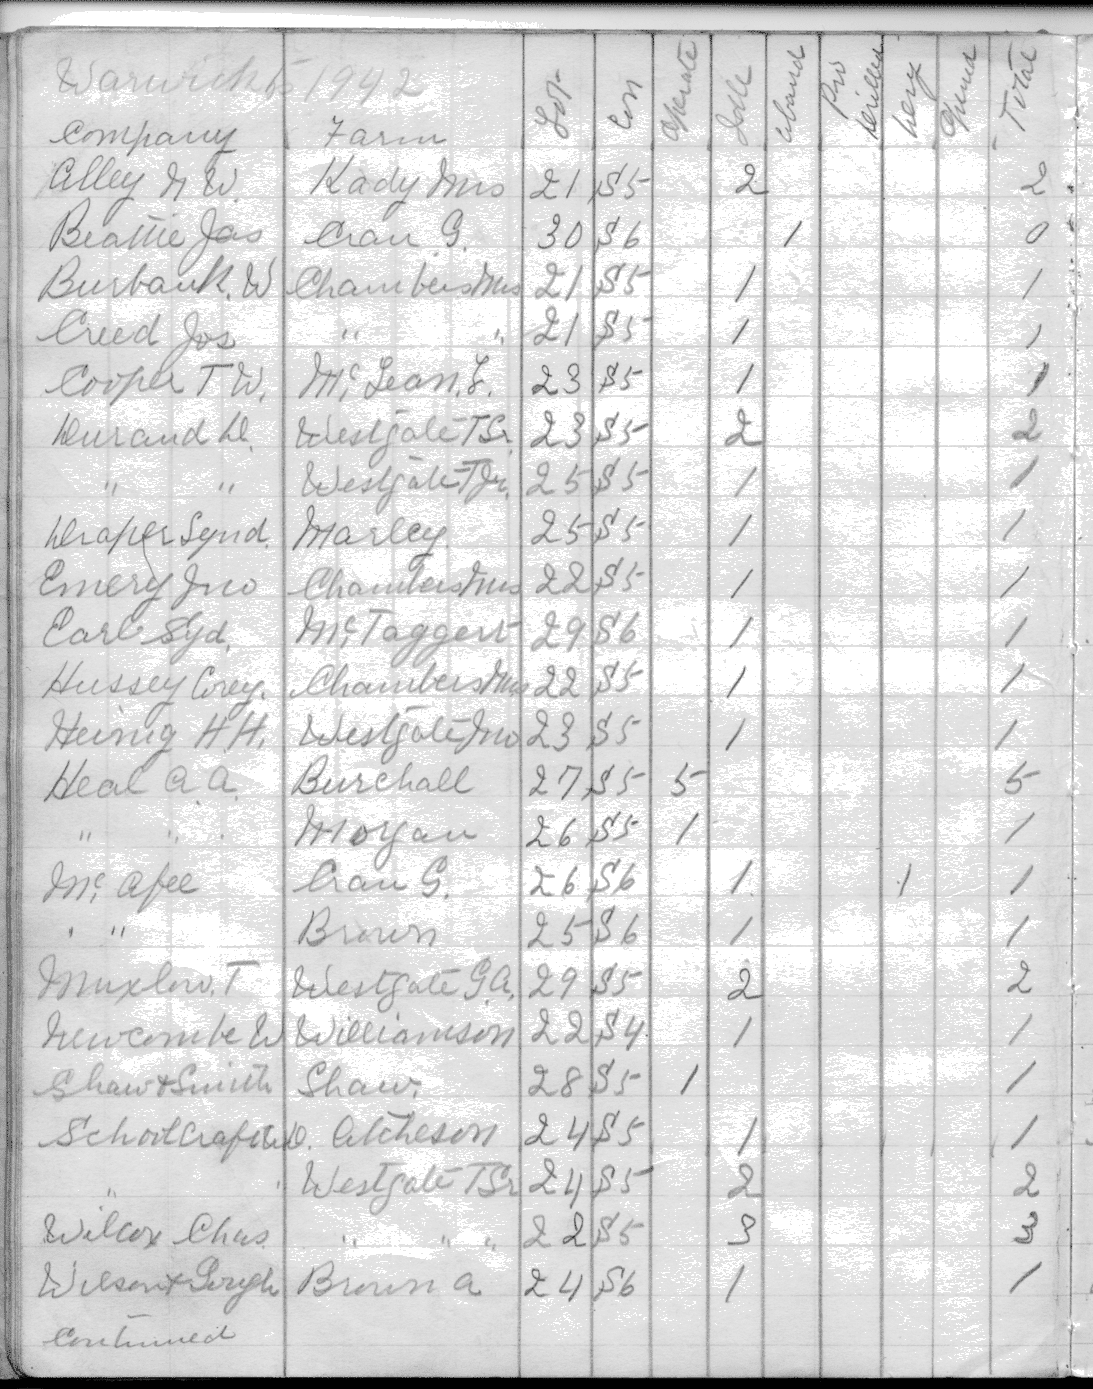 Warwick 1942
Company Farm Lot Con Operate Idle Aband Pro Drilled Wery Total
Alley N W. Kady Mrs 21 S5 2 2
Beattie Jas Cran G. 30 S6 1 0
Burbank. W Chambers Mrs 21 S5 1 1
Creed Jos " " 21 S5 1 1
Cooper T W. Mc Lean. L. 23 S5 1 1
Durand D. Westgate T Sr. 23 S5 2 2
" " Westgate T Jr. 25 S5 1 1
Draper Synd. Marley 25 S5 1 1
Emery Jno Chambers Mrs 22 S5 1 1
Earl Syd. Mc Taggert 29 S6 1 1
Hussey Corey. Chambers Mrs 22 S5 1 1
Heinig H H. Westgate Jno 23 S5 1 1
Heal A. A. Burchall 27 S5 5 5
" " Morgan 26 S5 1 1
Mc Afee Cran G. 26 S6 1 1 1
" " Brown 25 S6 1 1
Muxlow. T Westgate G.A. 29 S5 2 2
Newcombe W Williamson 22 S4 1 1
Shaw & Smith Shaw. 28 S5 1 1
Schoolcraft W D. Atcheson 24 S5 1 1
" " Westgate T Sr 24 S5 2 2
Wilcox Chas " " " 22 S5 3 3
Wilson & Gough Brown A 24 S6 1 1
Continued